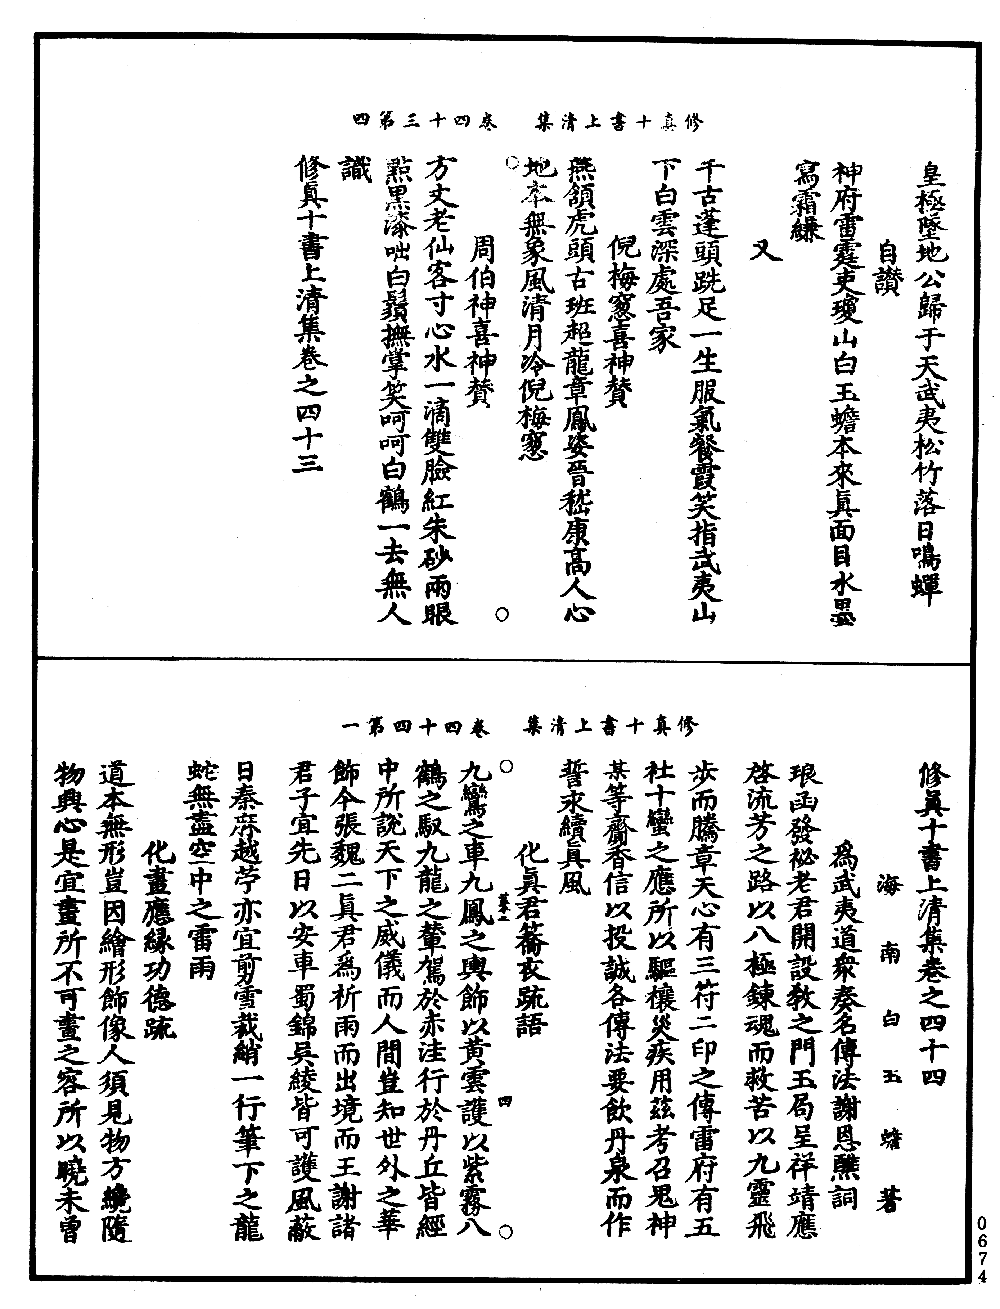 修真十書上清集　卷四十三第四
皇極墜地公歸于天武夷松竹落日鳴蟬
自讃
神府雷霆吏瓊山白玉蟾本來真面目水墨
寫霜縑
又
千古蓬頭跣足一生服氣餐霞笑指武夷山
下白雲深處吾家
倪梅窻喜神贊
燕頷虎頭古班超龍章鳳姿晉嵇康高人心
地本無象風清月冷倪梅窻
周伯神喜神贊
方丈老仙客寸心水一滴雙臉紅朱砂兩眼
㸃黑漆咄白鬚撫掌笑呵呵白鶴一去無人
識
修真十書上清集卷之四十三
修真十書上清集　卷四十四第一
修真十書上清集卷之四十四
海南白玉蟾著
為武夷道衆奏名傳法謝恩醮詞
琅函發祕老君開設教之門玉局呈祥靖應
啓流芳之路以八極鍊魂而救苦以九靈飛
步而騰章天心有三符二印之傳雷府有五
社十蠻之應所以驅禳災疾用兹考召鬼神
某等齋香信以投誠各傳法要飲丹泉而作
誓永續真風
化真君簥衣疏語
九鸞之車九鳳之輿飾以黃雲護以紫霧八
鶴之馭九龍之輦駕於赤洼行於丹丘皆經
中所說天下之威儀而人間豈知世外之華
飾今張魏二真君為祈雨而出境而王謝諸
君子宜先日以安車蜀錦吳綾皆可護風蔽
日秦麻越苧亦宜剪雪裁綃一行筆下之龍
蛇無盡空中之雷雨
化畫應緣功德疏
道本無形豈因繪形飾像人須見物方纔隨
物興心是宜畫所不可畫之容所以曉未曾
四
0674